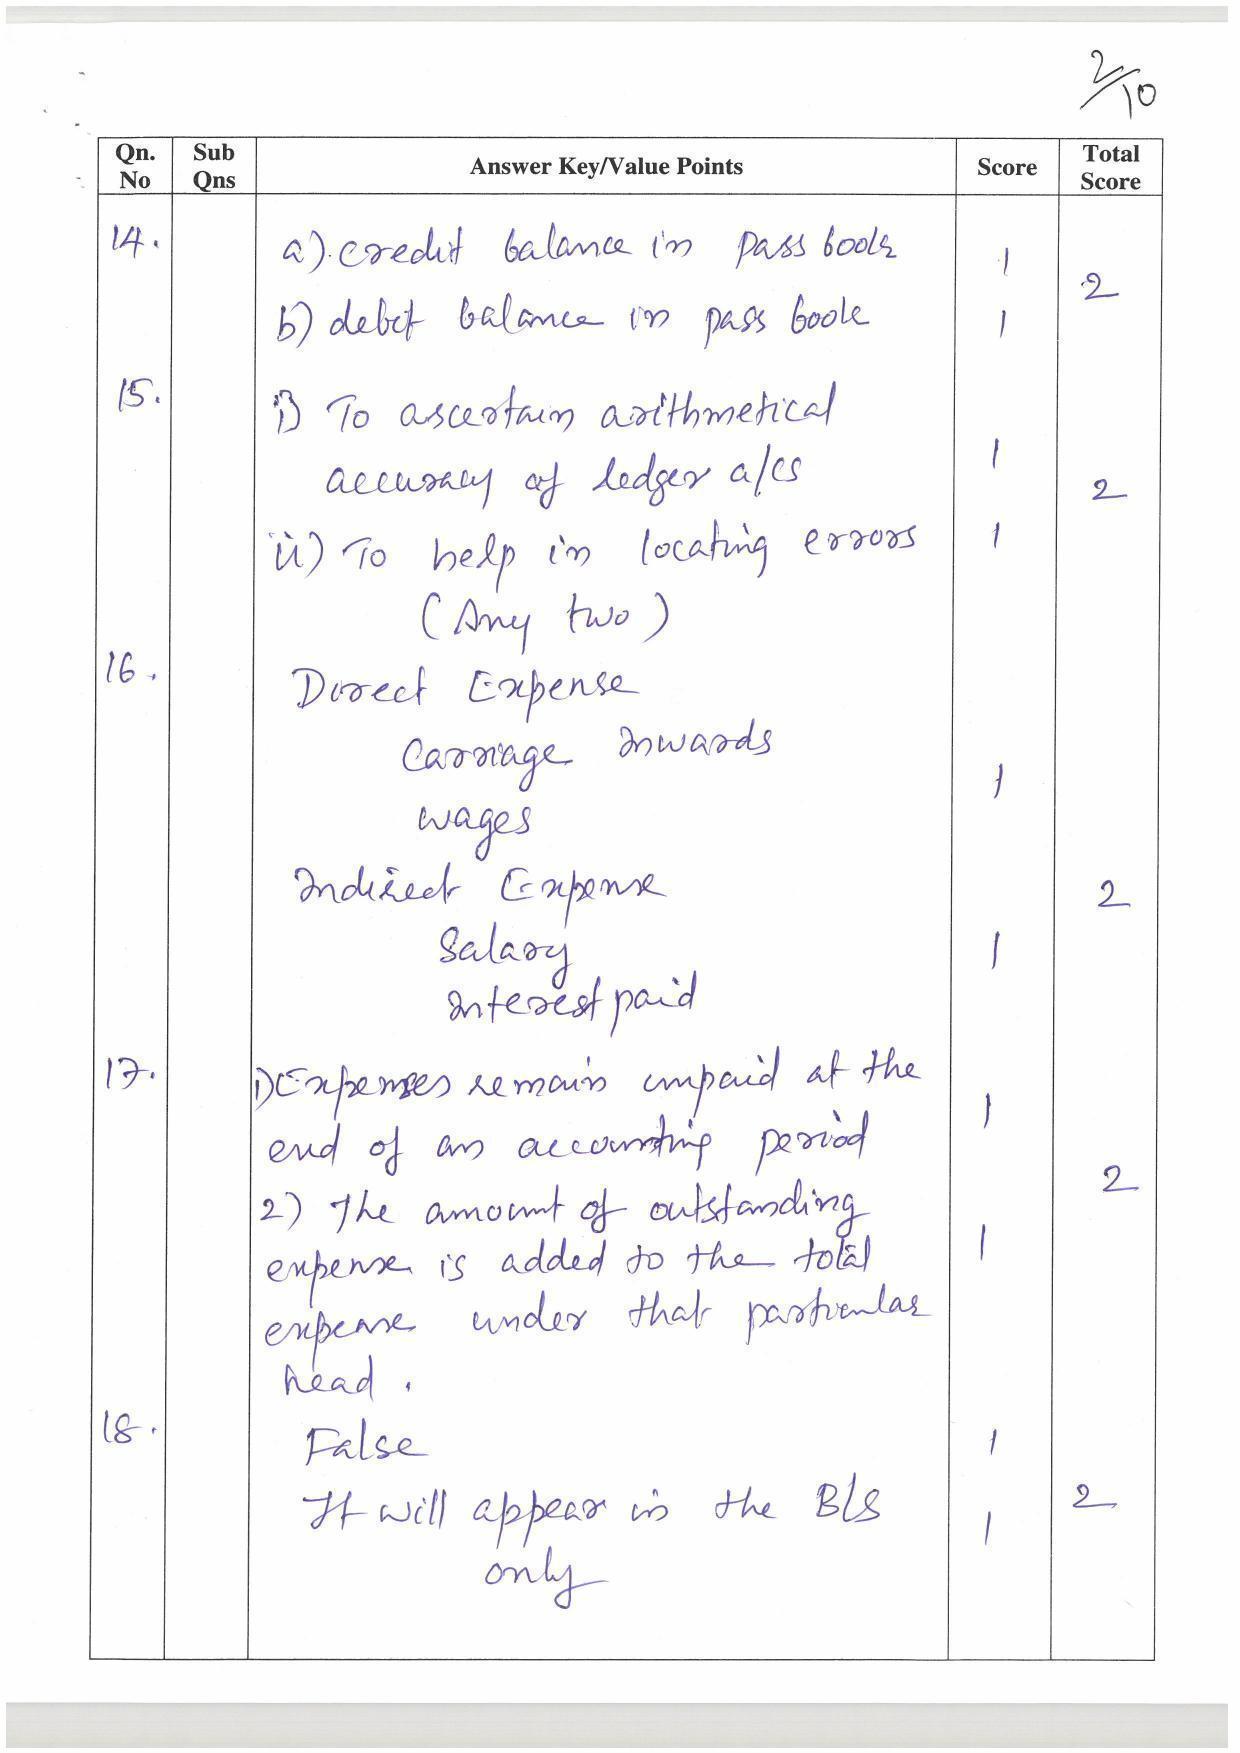 2/10
Qn. No Sub Qns Answer Key/Value Points Score Total Score
14. a). credit balance in pass book 1
2
b) debit balance in pass book 1
15. i) To ascertain arithmetical
accuracy of ledger a/cs 1
2
ii) To help in locating errors 1
(Any two)
16. Direct Expense
Carriage Inwards
1
wages
Indirect Expense 2
Salary 1
Interest paid
17. 1) Expenses remain unpaid at the
1
end of an accounting period
2
2) The amount of outstanding
expense is added to the total 1
expense under that particular
head.
18. False 1
It will appear in the B/S 2
1
only